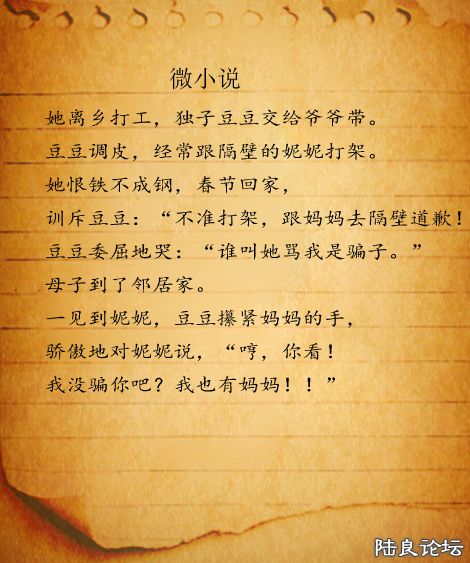 微小说
她离乡打工，独子豆豆交给爷爷带。
豆豆调皮，经常跟隔壁的妮妮打架。
她恨铁不成钢，春节回家，
训斥豆豆：“不准打架，跟妈妈去隔壁道歉！
豆豆委屈地哭：“谁叫她骂我是骗子。”
母子到了邻居家。
一见到妮妮，豆豆攥紧妈妈的手，
骄傲地对妮妮说，“哼，你看！
我没骗你吧？我也有妈妈！！”
陆良论坛